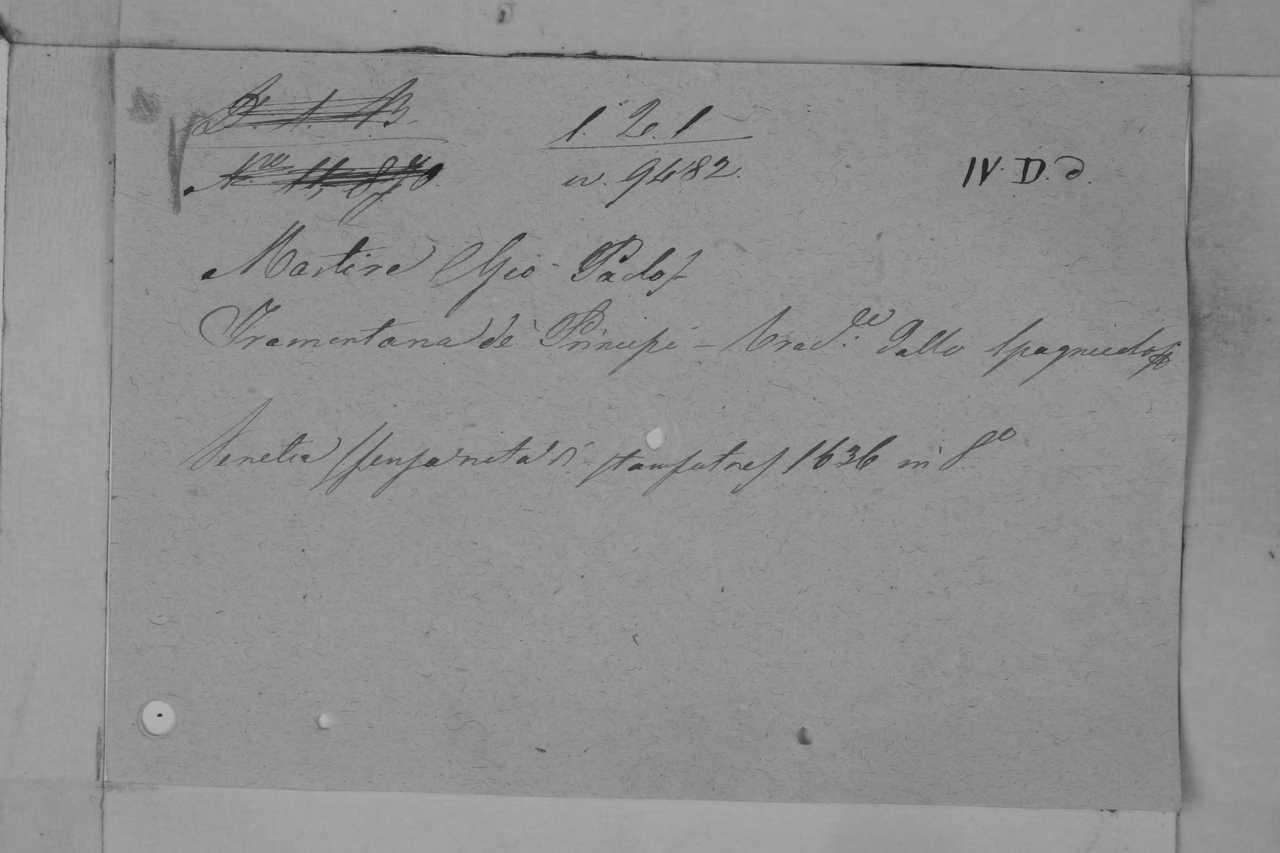 F. 1. B. 1. 2. 1
Nro 11870. n. 9482. IV. D. ∂.
Martire Gio: Paolo
Tramontana de Principi – Trad.e Dallo Spagnuolo
Venetia senza nota di stampatre 1636 in 8o